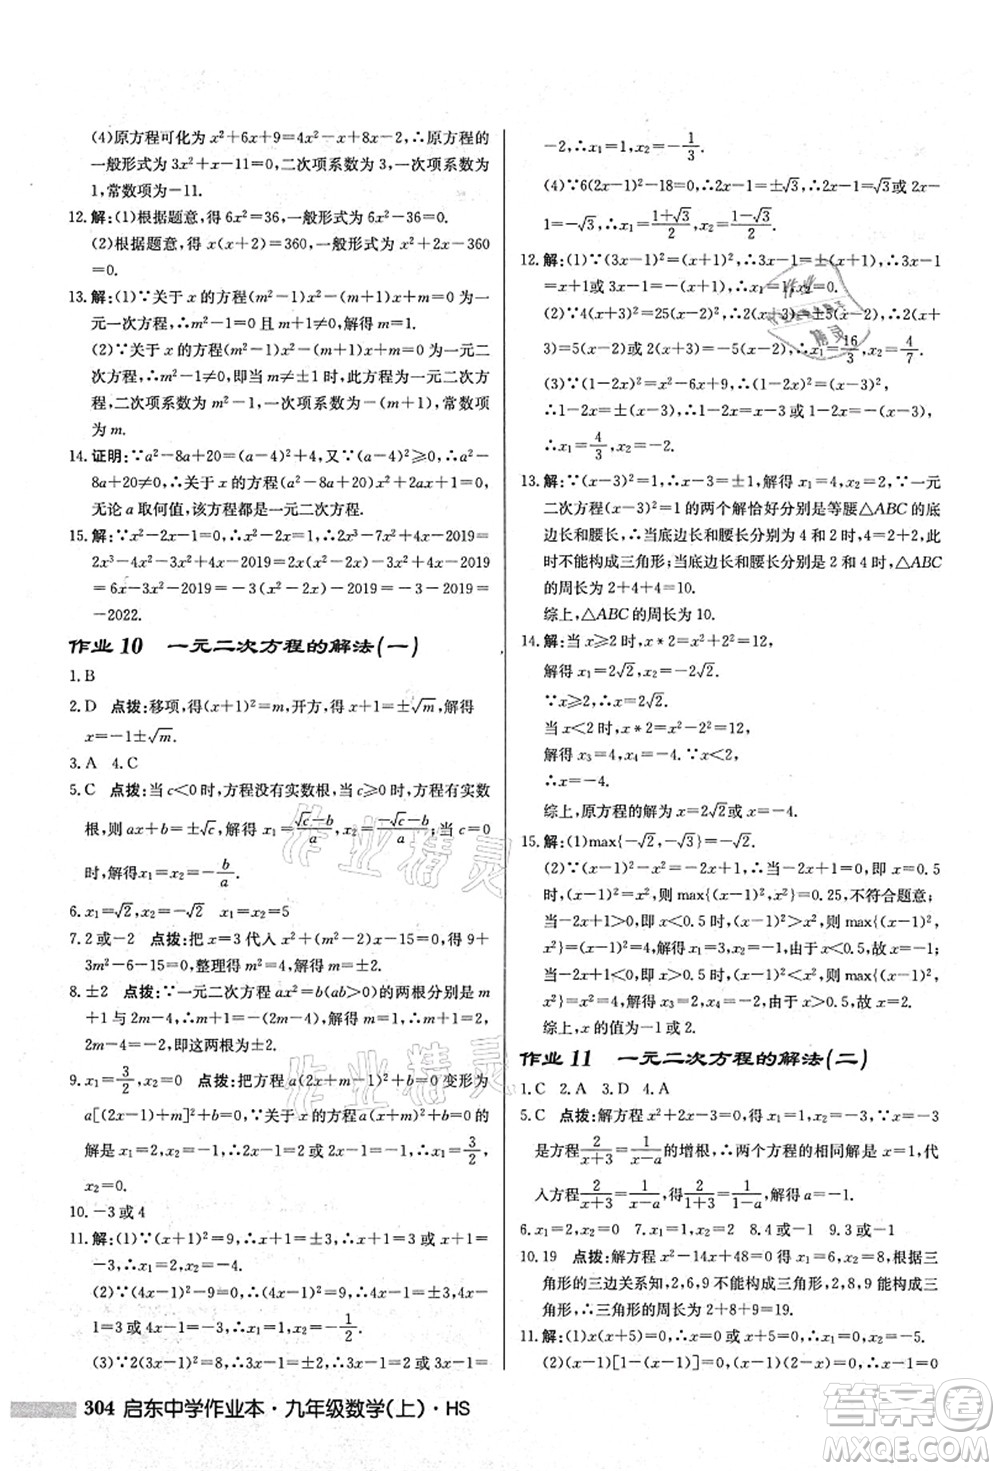 (4)原方程可化为 x²+6x+9=4x²-x+8x-2,∴原方程的
一般形式为 3x²+x-11=0,二次项系数为 3,一次项系数为
1,常数项为-11.
12. 解:(1)根据题意,得 6x²=36,一般形式为 6x²-36=0.
(2)根据题意,得 x(x+2)=360,一般形式为 x²+2x-360
=0.
13. 解:(1)∵关于 x 的方程(m²-1)x²-(m+1)x+m=0 为一
元一次方程,∴m²-1=0,且 m+1≠0,解得 m=1.
(2)∵关于 x 的方程(m²-1)x²-(m+1)x+m=0 为一元二
次方程,∴m²-1≠0,即当 m≠±1 时,此方程为一元二次方
程,二次项系数为 m²-1,一次项系数为-(m+1),常数项
为 m.
14. 证明:∵a²-8a+20=(a-4)²+4,(a-4)²≥0,∴a²-
8a+20≠0,∴关于 x 的方程(a²-8a+20)x²+2ax+1=0,
无论 a 取何值,该方程都是一元二次方程.
15. 解:∵x²-2x-1=0,∴x²-2x=1,∴2x³-7x²+4x-2019=
2x³-4x²-3x²+4x-2019=2x(x²-2x)-3x²+4x-2019
=6x-3x²-2019=-3(x²-2x)-2019=-3-2019=
-2022.
作业 10 一元二次方程的解法(一)
1. B
2. D 点拨:移项,得(x+1)²=m,开方,得 x+1=±√m,解得
x=-1±√m.
3. A 4. C
5. C 点拨:当 c<0 时,方程没有实数根,当 c≥0 时,方程有实数
根,则 ax+b=±√c,解得 x₁=(√c-b)/a,x₂=(-√c-b)/a;当 c=0
时,解得 x₁=x₂=-b/a.
6. x₁=√2,x₂=-√2 x₁=x₂=5
7. 2 或-2 点拨:把 x=3 代入 x²+m²x-2x-15=0,得 9+
3m²-6-15=0,整理得 m²=4,解得 m=±2.
8. ±2 点拨:∵一元二次方程 ax²=b(ab>0)的两根分别是 m
+1 与 2m-4,∴m+1+2m-4=0,解得 m=1,∴一元二次
方程 ax²=b(ab>0)的两个根分别是±2.
9. x₁=3/2,x₂=0 点拨:把方程 a(2x+m-1)²+b=0 变形为
a[(2x-1)+m]²+b=0,∵关于 x 的方程 a(x+m)²+b=0 的
解是 x₁=2,x₂=-1,∴2x-1=2 或 2x-1=-1,∴x₁=3/2,
x₂=0.
10. -3 或 4
11. 解:(1)∵(2x+5)²-9=0,∴(2x+5)²=9,∴2x+5=3 或
-3,∴x₁=-1,x₂=-4.
(2)∵(4x-1)²-9=0,∴(4x-1)²=9,∴4x-1=±3,即
4x-1=3 或 4x-1=-3,解得 x₁=1,x₂=-1/2.
(3)∵2(3x-1)²=8,∴(3x-1)²=4,∴3x-1=2 或 3x-1=
-2,∴x₁=1,x₂=-1/3.
(4)∵6(2x-1)²-18=0,∴(2x-1)²=3,∴2x-1=√3或 2x-
1=-√3,∴x₁=(1+√3)/2,x₂=(1-√3)/2.
12. 解:(1)∵(3x-1)²=(x+1)²,∴3x-1=x+1 或 3x-1
=-(x+1),解得 x₁=1,x₂=0.
(2)∵4(x+3)²=25(x-2)²,∴2(x+3)=±5(x-2),∴2x
+6=5x-10 或 2x+6=-5x+10,∴x₁=16/3,x₂=4/7.
(3)∵1-4x+4x²=x²-6x+9,∴(1-2x)²=(x-3)²,
∴1-2x=±(x-3),∴1-2x=x-3 或 1-2x=-(x-3),
∴x₁=4/3,x₂=-2.
13. 解:∵(x-3)²=1,∴x-3=±1,解得 x₁=4,x₂=2.∵一元
二次方程(x-3)²=1 的两个解恰好分别是等腰△ABC 的
底边长和腰长,∴①当底边长和腰长分别为 4 和 2 时,4=2
+2,此时不能构成三角形;②当底边长和腰长分别是 2 和 4
时,能构成三角形,∴△ABC 的周长为 2+4+4=10.
综上,△ABC 的周长为 10.
14. 解:当 x≥2 时,x*2=x²+x·2²=12,
解得 x₁=2√2,x₂=-2√2,
∵x≥2,∴x=2√2.
当 x<2 时,x*2=x²-2²=12,
解得 x₃=4,x₄=-4,
∵x<2,∴x=-4.
综上,原方程的解为 x=2√2或 x=-4.
15. 解:(1)max{-√2,-√3}=-√2.
(2)∵(x-1)²-x²=-2x+1,∴当-2x+1=0,即 x=0.5
时,(x-1)²=x²,此时 max{(x-1)²,x²}=0.25,不符合题意;
当-2x+1>0,即 x<0.5 时,(x-1)²>x²,则 max{(x-1)²,x²}
=(x-1)²=4,解得 x₁=3,x₂=-1,由于 x<0.5,故 x=-1;
当-2x+1<0,即 x>0.5 时,(x-1)²<x²,则 max{(x-1)²,
x²}=x²=4,解得 x₃=2,x₄=-2,由于 x>0.5,故 x=2.
综上,x 的值为-1 或 2.
作业 11 一元二次方程的解法(二)
1. C 2. A 3. D 4. A
5. C 点拨:解方程 x²+2x-3=0,得 x₁=1,x₂=-3,∵x=-3
是方程 2/(x+3)=1/(x-a)的增根,∴两个方程的相同解是 x=1,代
入方程 2/(x+3)=1/(x-a),得 2/(1+3)=1/(1-a),∴a=-1.
6. x₁=2,x₂=0 7. x₁=1,x₂=-2 8. 4 或-1 9. 3 或-3
10. 19 点拨:解方程 x²-14x+48=0 得 x₁=6,x₂=8,根据三
角形的三边关系知,2,6,9 不能构成三角形,2,8,9 能构成
三角形,∴三角形的周长为 2+8+9=19.
11. 解:(1)x(x+5)=0,x=0 或 x+5=0,x₁=0,x₂=-5.
(2)(x-1)[1-(x-1)]=0,(x-1)(2-x)=0,x-1=0
304 启东中学作业本·九年级数学(上)·HS
作业精灵
作业精灵
作业
精灵
答案圈
MXQE.COM